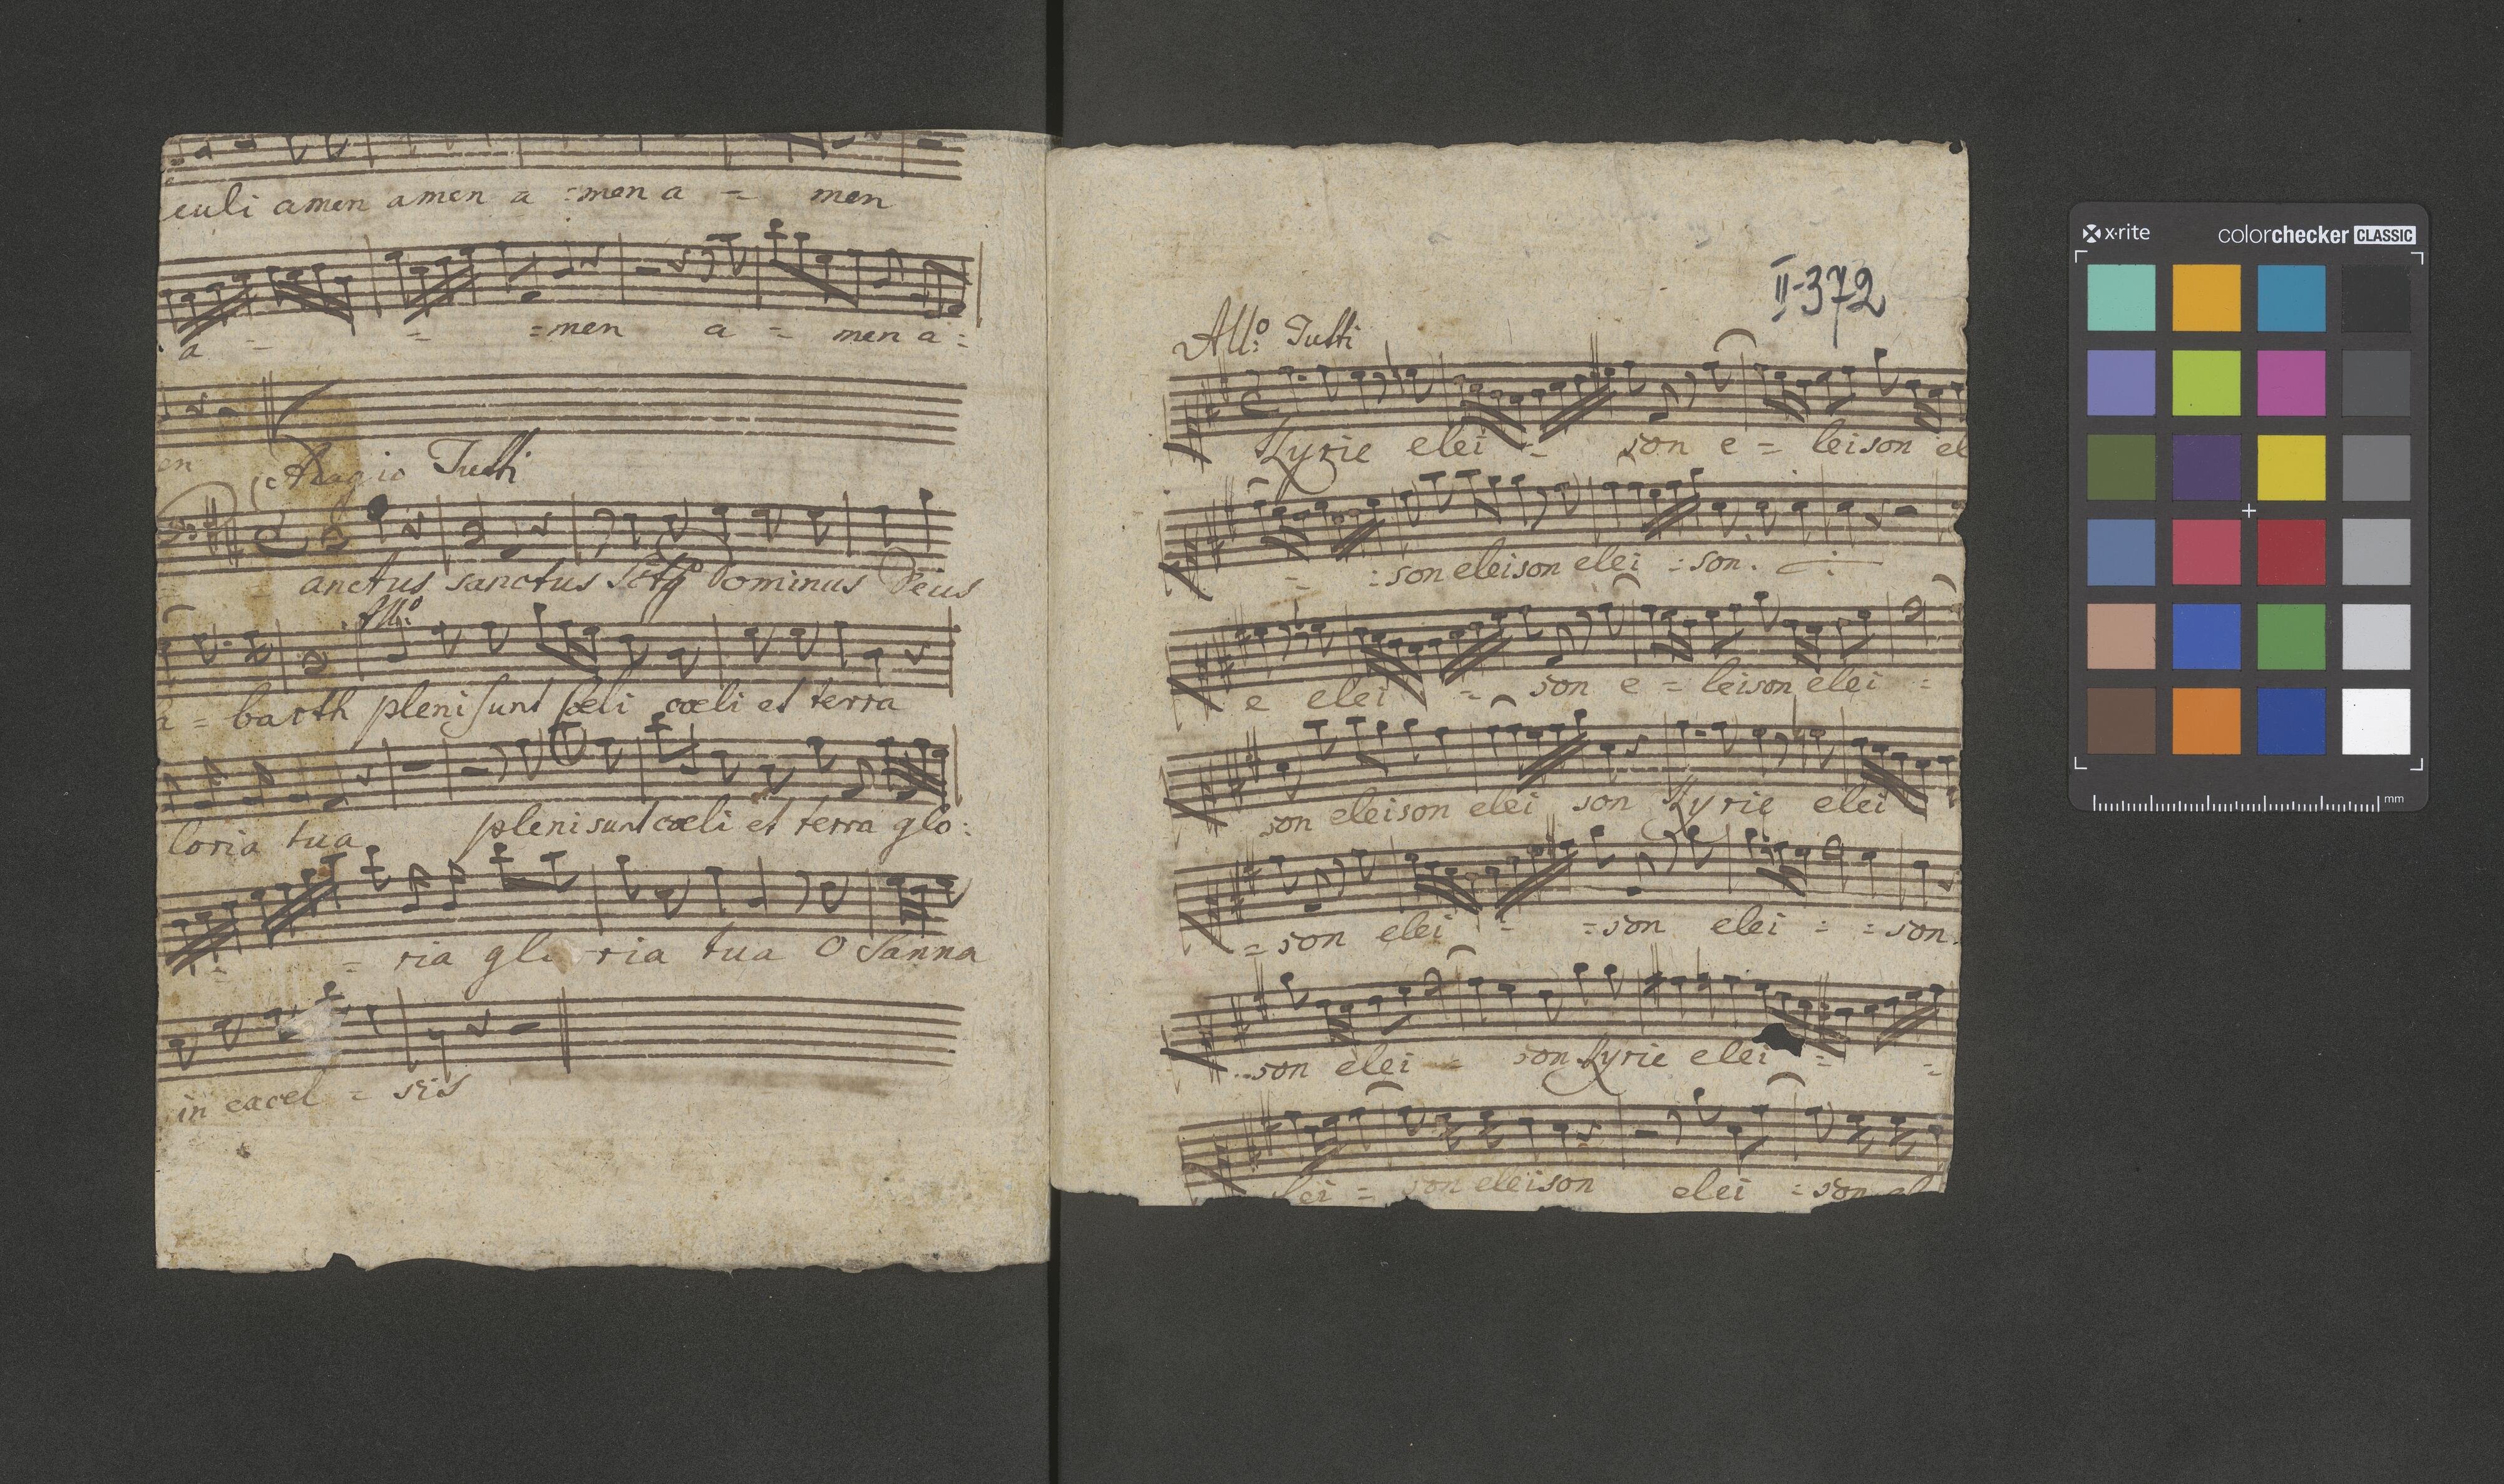 euli amen amen a =men a = men
a = = =men a = men a:
en
Adagio Tutti
anctus sanctus Dominus Deus
All:o
a = barth pleni sunt cœli cœli et terra
loria tua pleni sunt cœli et terra glo:
= = ria glo ria tua O Sanna
in excel = sis
II-372
All:o Tutti
Kyrie elei = son e = leison el
= :son eleison elei :son.
e elei = son e = leison elei =
son eleison elei son Kyrie elei
= son elei = =son elei = = son.
son elei = son Kyrie elei = =
lei = son eleison elei =son el
x·rite
colorchecker CLASSIC
mm